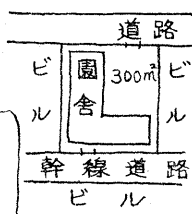 道路
ビル
園舎
300㎡
ビル
幹線道路
ビル